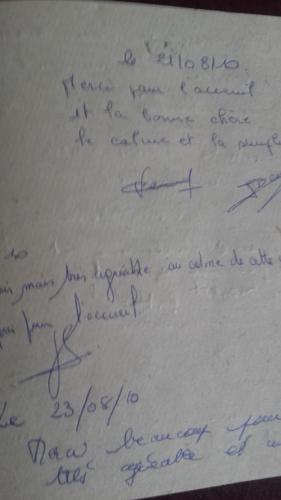 le 21/08/10
Merci pour l'accueil
et la bonne chère
le calme et la
10
mais très agréable au calme de cette
pour l'accueil
Le 23/08/10
Merci beaucoup pour
très agréable et